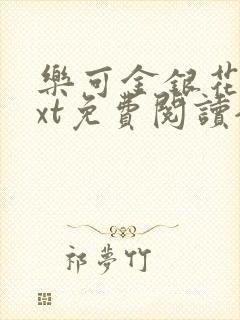 樂可金銀花
xt免費閱讀
祁夢竹